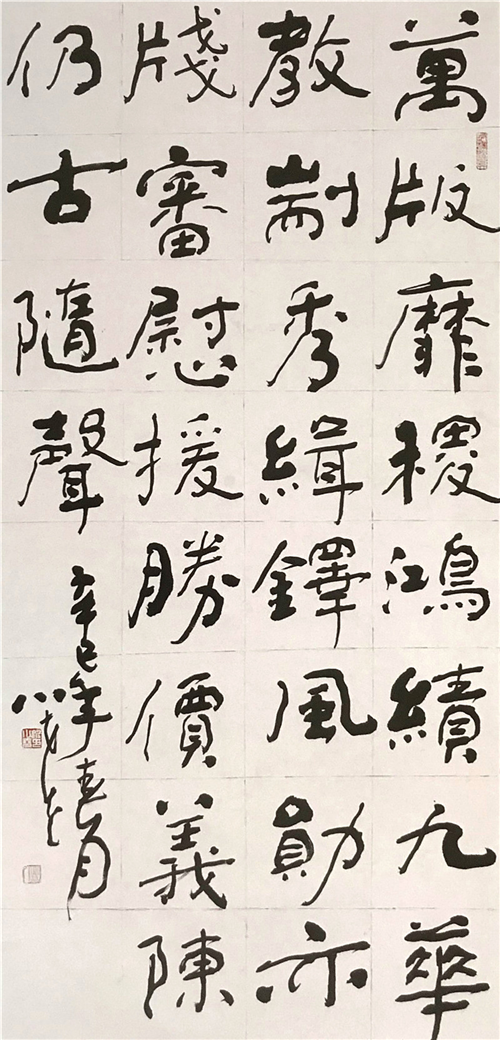 萬版靡稷鴻績九華
教剬秀緝鐸風勛亦
牋審慰援勝價義陳
仍古隨聲
辛巳年春月